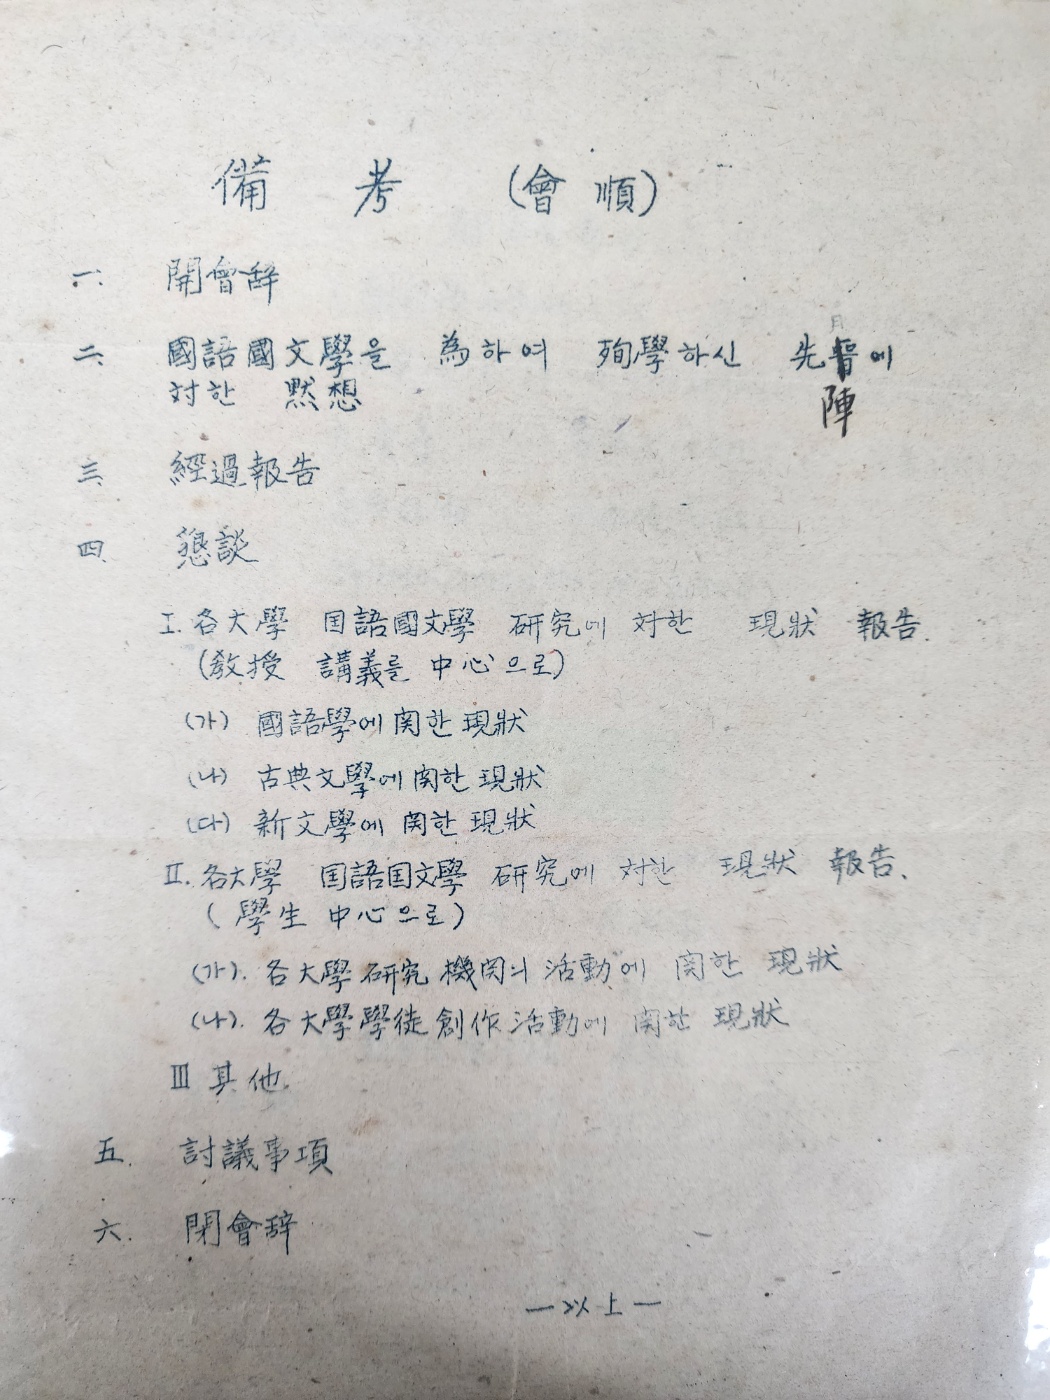 備 考 (會 順)
一、 開會辞
二、 國語國文學을 為하여 殉學하신 先에
陣
対한 黙想
三、 經過報告
四、 懇談
I. 各大學 囯語國文學 研究에 対한 現狀 報告.
(敎授 講義를 中心으로)
(가) 國語學에 関한 現狀
(나) 古典文學에 関한 現狀
(다) 新文學에 関한 現狀
II. 各大學 囯語囯文學 研究에 対한 現狀 報告.
( 學生 中心으로)
(가). 各大學 研究 機関의 活動에 関한 現狀
(나). 各大學學徒創作活動에 関한 現狀
III 其他.
五. 討議事項
六. 閉會辞
— 以上 —